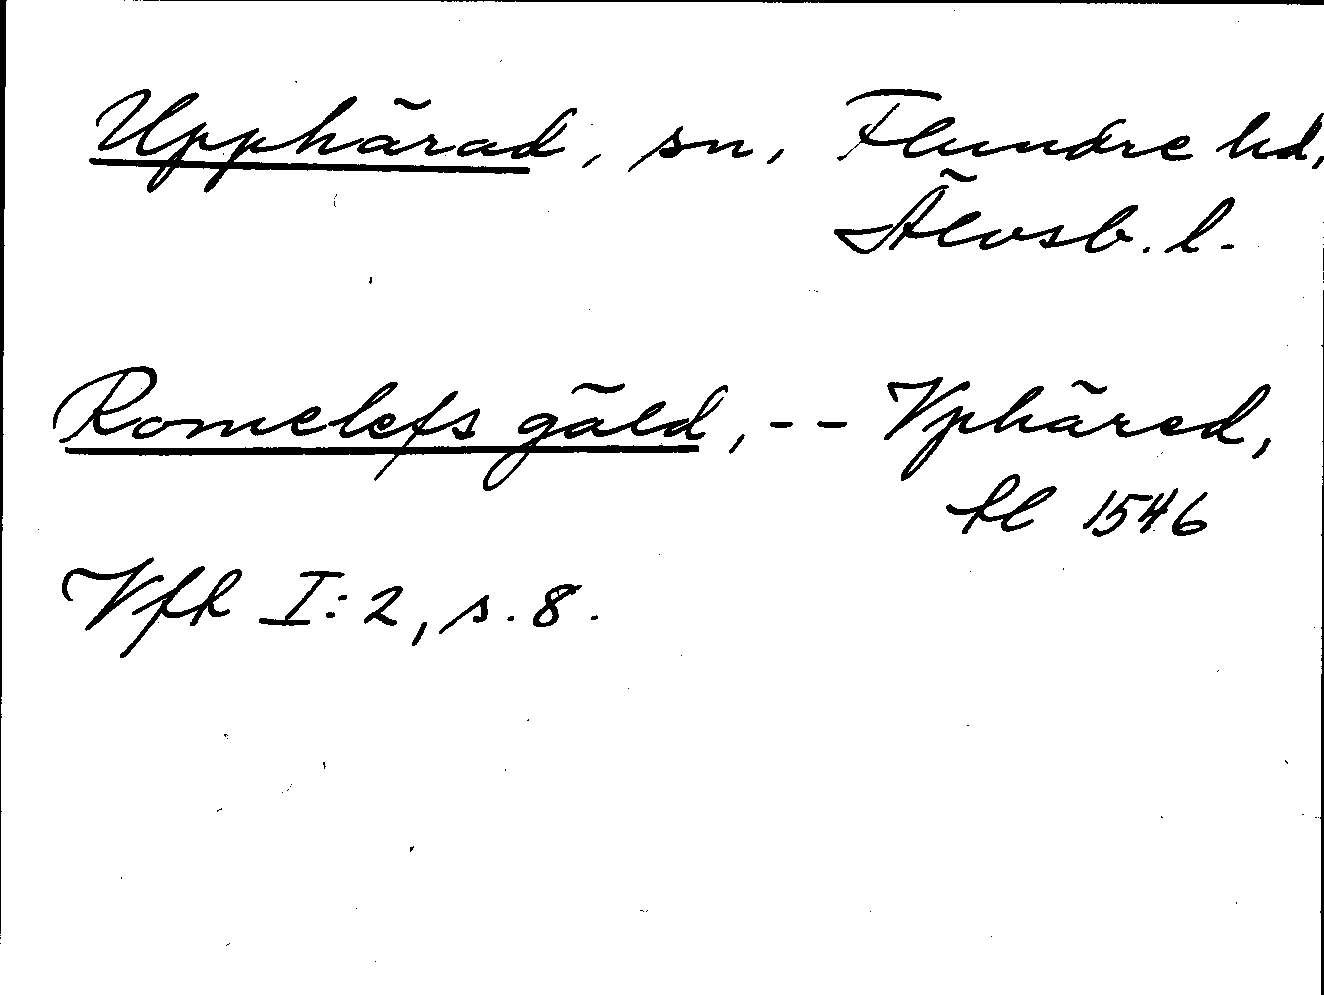 Upphärad, sn, Flundre hd,
Älvsb. l.
Romelefs gäld, -- Vphäred,
hl 1546
Vfh I:2, s. 8.